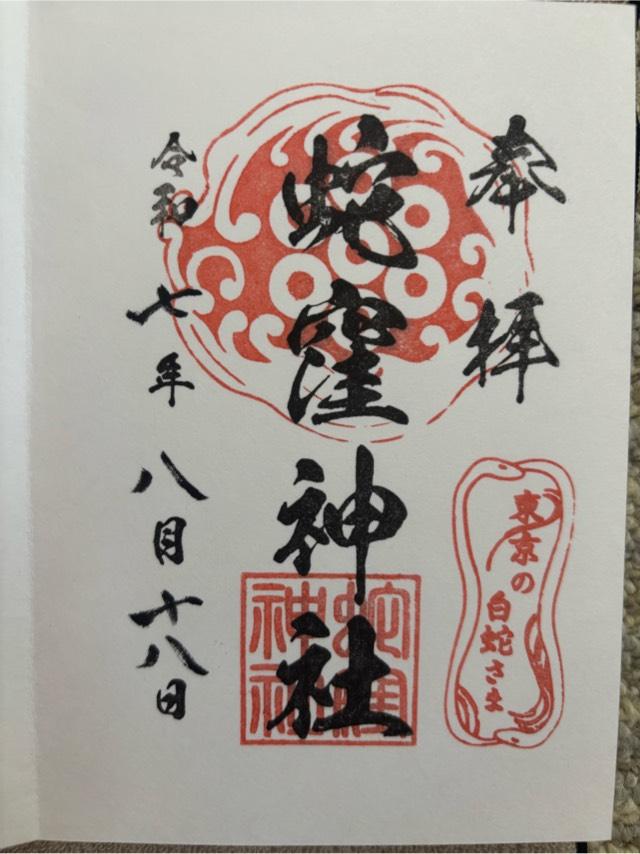 奉拝
東京の
白蛇さま
蛇窪神社
蛇窪
神社
令和七年八月十八日